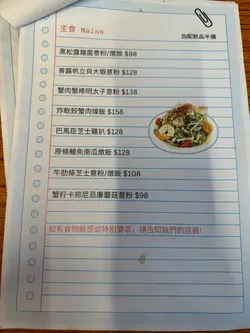 主食 Mains
加配飲品半價
黑松露雜菌意粉/燉飯 $98
青醬帆立貝大蝦意粉 $128
蟹肉蟹棒明太子意粉 $138
炸軟殼蟹肉嗓飯 $158
巴馬臣芝士雞扒 $128
原條鰻魚南瓜燉飯 $128
牛肋條芝士意粉/燉飯 $108
蟹籽卡邦尼忌廉蘑菇意粉 $98
如有食物敏感或特別要求，請告知我們的店員!